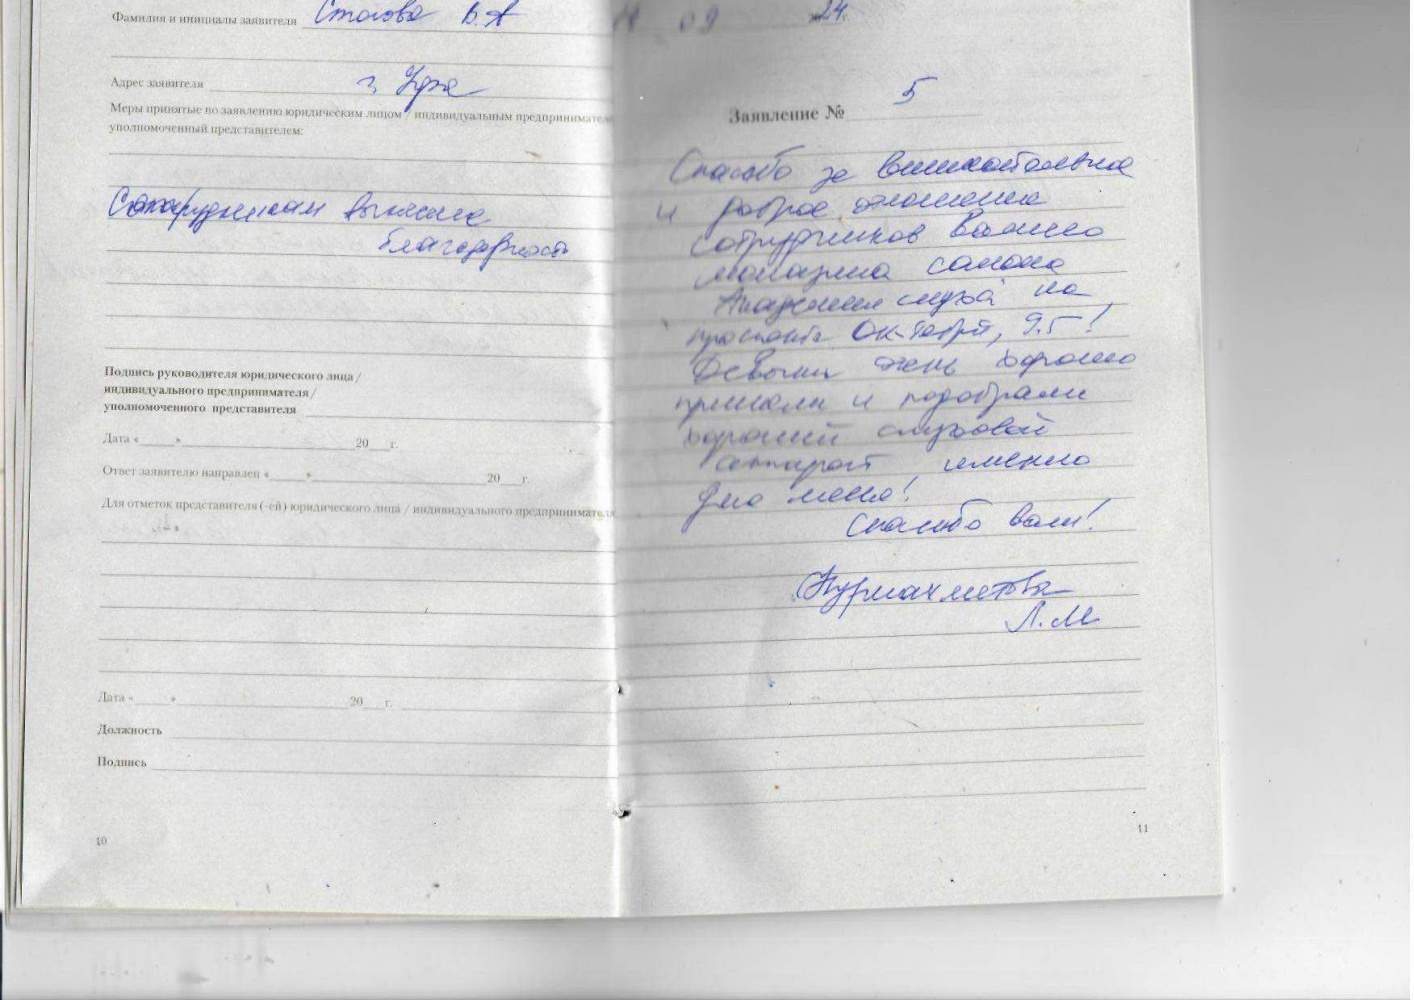 Фамилия и инициалы заявителя Стогова В.А
Адрес заявителя г. Уфа
Меры принятые по заявлению юридическим лицом / индивидуальным предпринимателем
уполномоченный представителем:
Сотрудникам вынесена
благодарность
Подпись руководителя юридического лица /
индивидуального предпринимателя /
уполномоченного представителя
Дата «____»____20__г.
Ответ заявителю направлен «____»____20__г.
Для отметок представителя (-ей) юридического лица / индивидуального предпринимателя
Дата «____»____20__г.
Должность
Подпись
10
09 24г.
Заявление № 5
Спасибо за внимательное
и доброе отношение
сотрудников Вашего
магазина салона
Академия слуха на
проспекте Октября, 9.5!
Девочки очень хорошо
приняли и подобрали
хороший слуховой
аппарат именно
для меня!
Спасибо вам!
Нурмахметова
Л.М
11